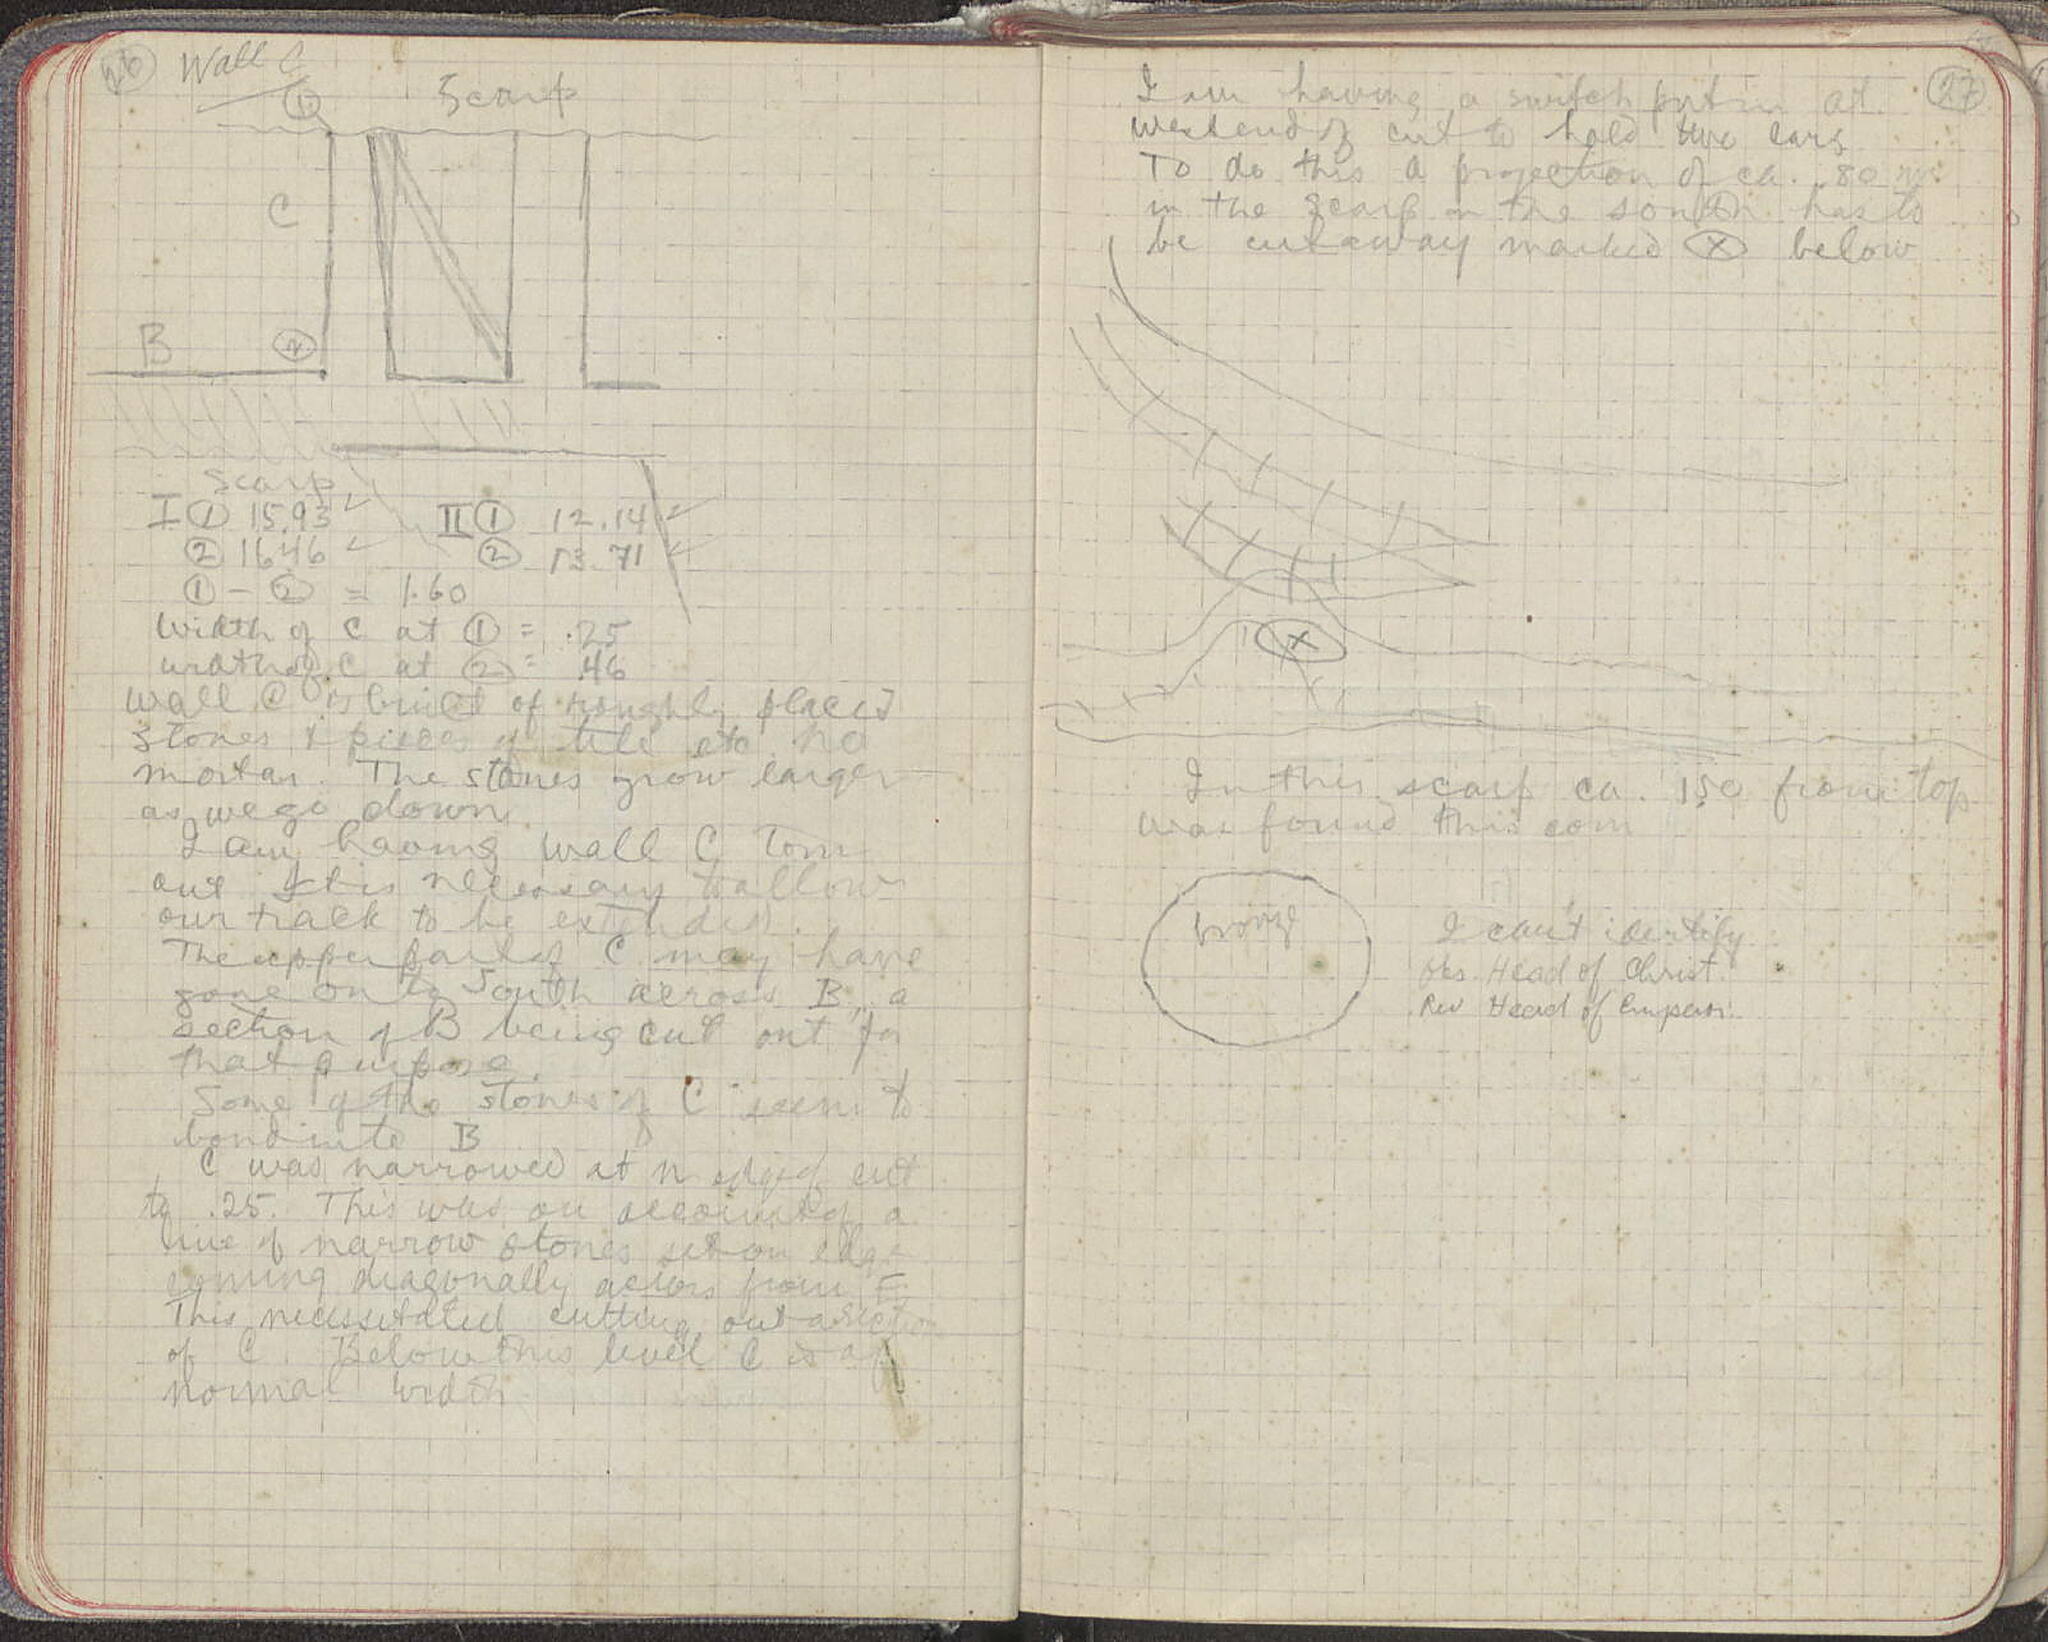 26 Wall C
① Scarp
C
B ②
Scarp
I ① 15.93 II ① 12.14
② 16.46 ② 13.71
① - ② = 1.60
Width of C at ① = .25
width of C at ② = .46
Wall C is built of roughly placed
stones & pieces of tile etc. no
mortar. The stones grow larger
as we go down.
I am having wall C torn
out It is necessary to allow
our track to be extended.
The upper part of C may have
gone on to South across B, a
section of B being cut out for
that purpose.
Some of the stones of C seem to
bond into B
C was narrowed at N edge of cut
to .25. This was on account of a
line of narrow stones set on edge
coming diagonally across from E.
This necessitated cutting out a section
of C. Below this level C is of
normal width
27
I am having a switch put in at
west end of cut to hold two cars
To do this a projection of ca. .80 m.
in the scarp on the south has to
be cut away marked Ⓧ below
X
In this scarp ca. 1.50 from top
was found this coin
bronze
I can't identify
Obs. Head of Christ.
Rev Head of Emperor.